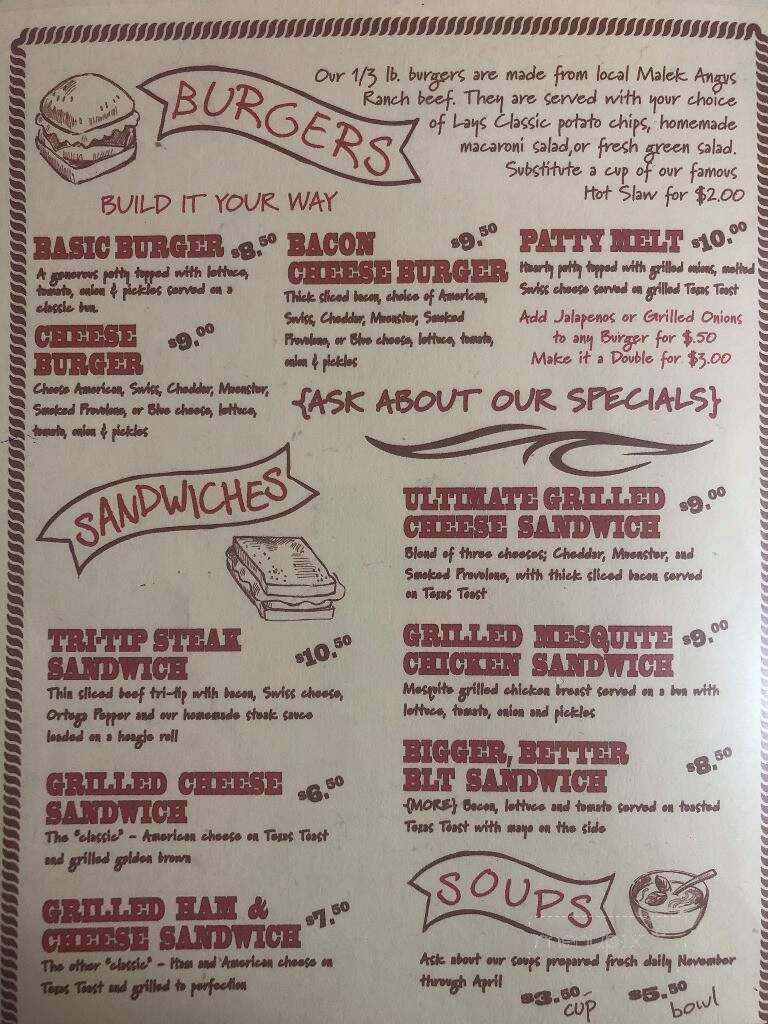 BURGERS
Our 1/3 lb. burgers are made from local Malek Angus
Ranch beef. They are served with your choice
of Lays Classic potato chips, homemade
macaroni salad,or fresh green salad.
Substitute a cup of our famous
Hot Slaw for $2.00
BUILD IT YOUR WAY
BASIC BURGER $8.50
A generous patty topped with lettuce,
tomato, onion & pickles served on a
classic bun.
CHEESE
BURGER $9.00
Choose American, Swiss, Cheddar, Muenster,
Smoked Provolone, or Blue cheese, lettuce,
tomato, onion & pickles
BACON $9.50
CHEESE BURGER
Thick sliced bacon, choice of American,
Swiss, Cheddar, Muenster, Smoked
Provolone, or Blue cheese, lettuce, tomato,
onion & pickles
PATTY MELT $10.00
Hearty patty topped with grilled onions, melted
Swiss cheese served on grilled Texas Toast
Add Jalapenos or Grilled Onions
to any Burger for $.50
Make it a Double for $3.00
{ASK ABOUT OUR SPECIALS}
SANDWICHES
TRI-TIP STEAK
SANDWICH $10.50
Thin sliced beef tri-tip with bacon, Swiss cheese,
Ortega Pepper and our homemade steak sauce
loaded on a hoagie roll
GRILLED CHEESE
SANDWICH $6.50
The "classic" - American cheese on Texas Toast
and grilled golden brown
GRILLED HAM &
CHEESE SANDWICH $7.50
The other "classic" - Ham and American cheese on
Texas Toast and grilled to perfection
ULTIMATE GRILLED
CHEESE SANDWICH $9.00
Blend of three cheeses; Cheddar, Muenster, and
Smoked Provolone, with thick sliced bacon served
on Texas Toast
GRILLED MESQUITE
CHICKEN SANDWICH $9.00
Mesquite grilled chicken breast served on a bun with
lettuce, tomato, onion and pickles
BIGGER, BETTER
BLT SANDWICH $8.50
{MORE} Bacon, lettuce and tomato served on toasted
Texas Toast with mayo on the side
SOUPS
menupix
Ask about our soups prepared fresh daily November
through April
$3.50- cup $5.50 bowl